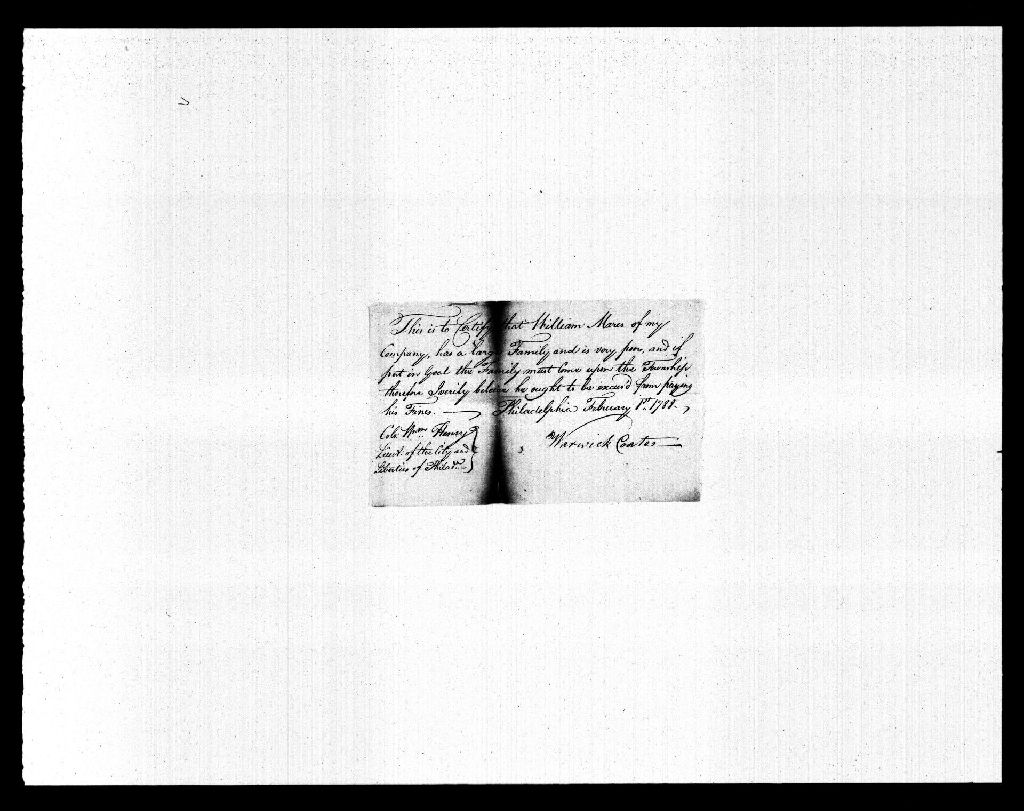 This is to Certify that William Mares of my
Company, has a large Family and is very poor, and if
put in Goal the Family must Come upon the Township,
therefore I verily believe he ought to be excus'd from paying
his Fines. Philadelphia February 1st. 1788.
Colo. Wm. Henry
Lieut. of the City and
Liberties of Philada.
Warwick Coates